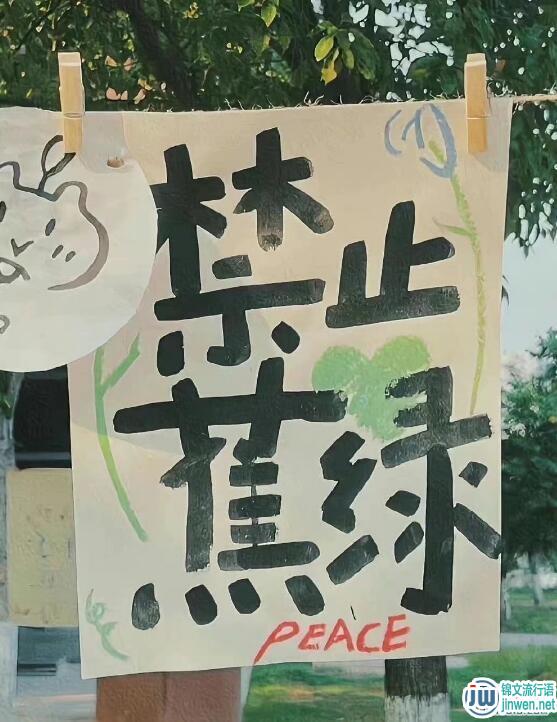 禁止
蕉绿
PEACE
锦文流行语
jinwen.net